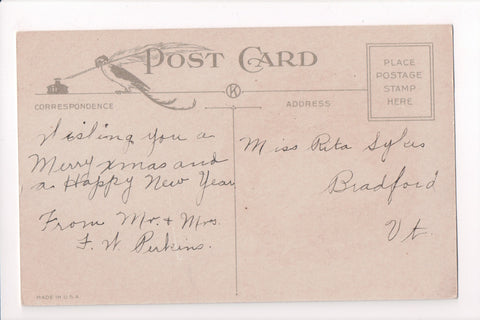 POST CARD
PLACE
POSTAGE
STAMP
HERE
K
CORRESPONDENCE
ADDRESS
Wishing you a
Merry xmas and
a Happy New Year
From Mr. + Mrs.
F. W. Perkins.
Miss Rita Sykes
Bradford
Vt.
MADE IN U.S.A.